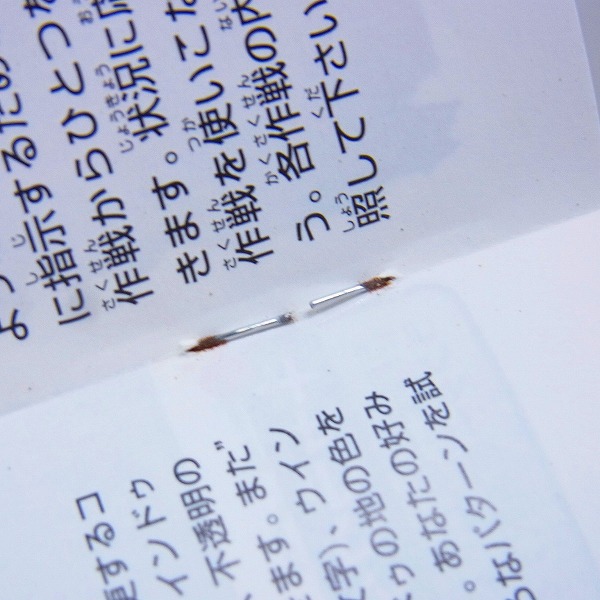 に指示するための
作戦からひとつを
きます。状況に応
作戦を使いこな
う。各作戦の内
照して下さい
更するコ
インドゥ
、不透明の
きます。まだ
文字)、ウイン
ゥの地の色を
。あなたの好み
なパターンを試